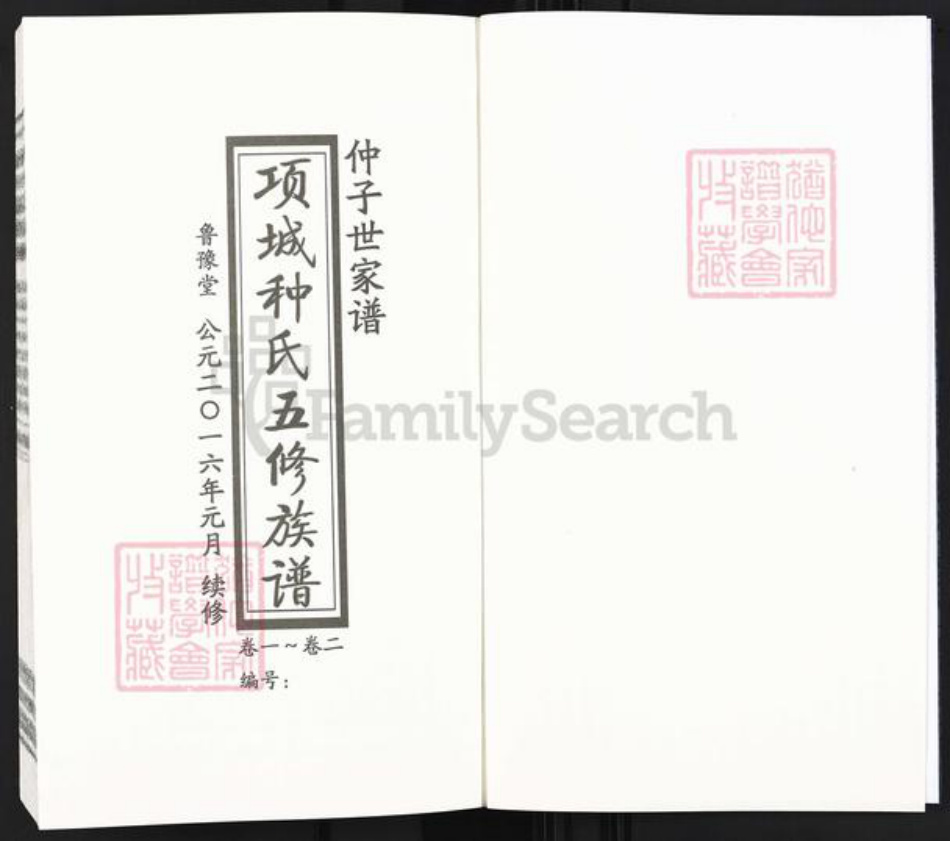 仲子世家谱
项城种氏五修族谱
鲁豫堂 公元二〇一六年元月 续修
卷一~卷二
编号:
FamilySearch
猶他家
譜學會
收藏
猶他家
譜學會
收藏